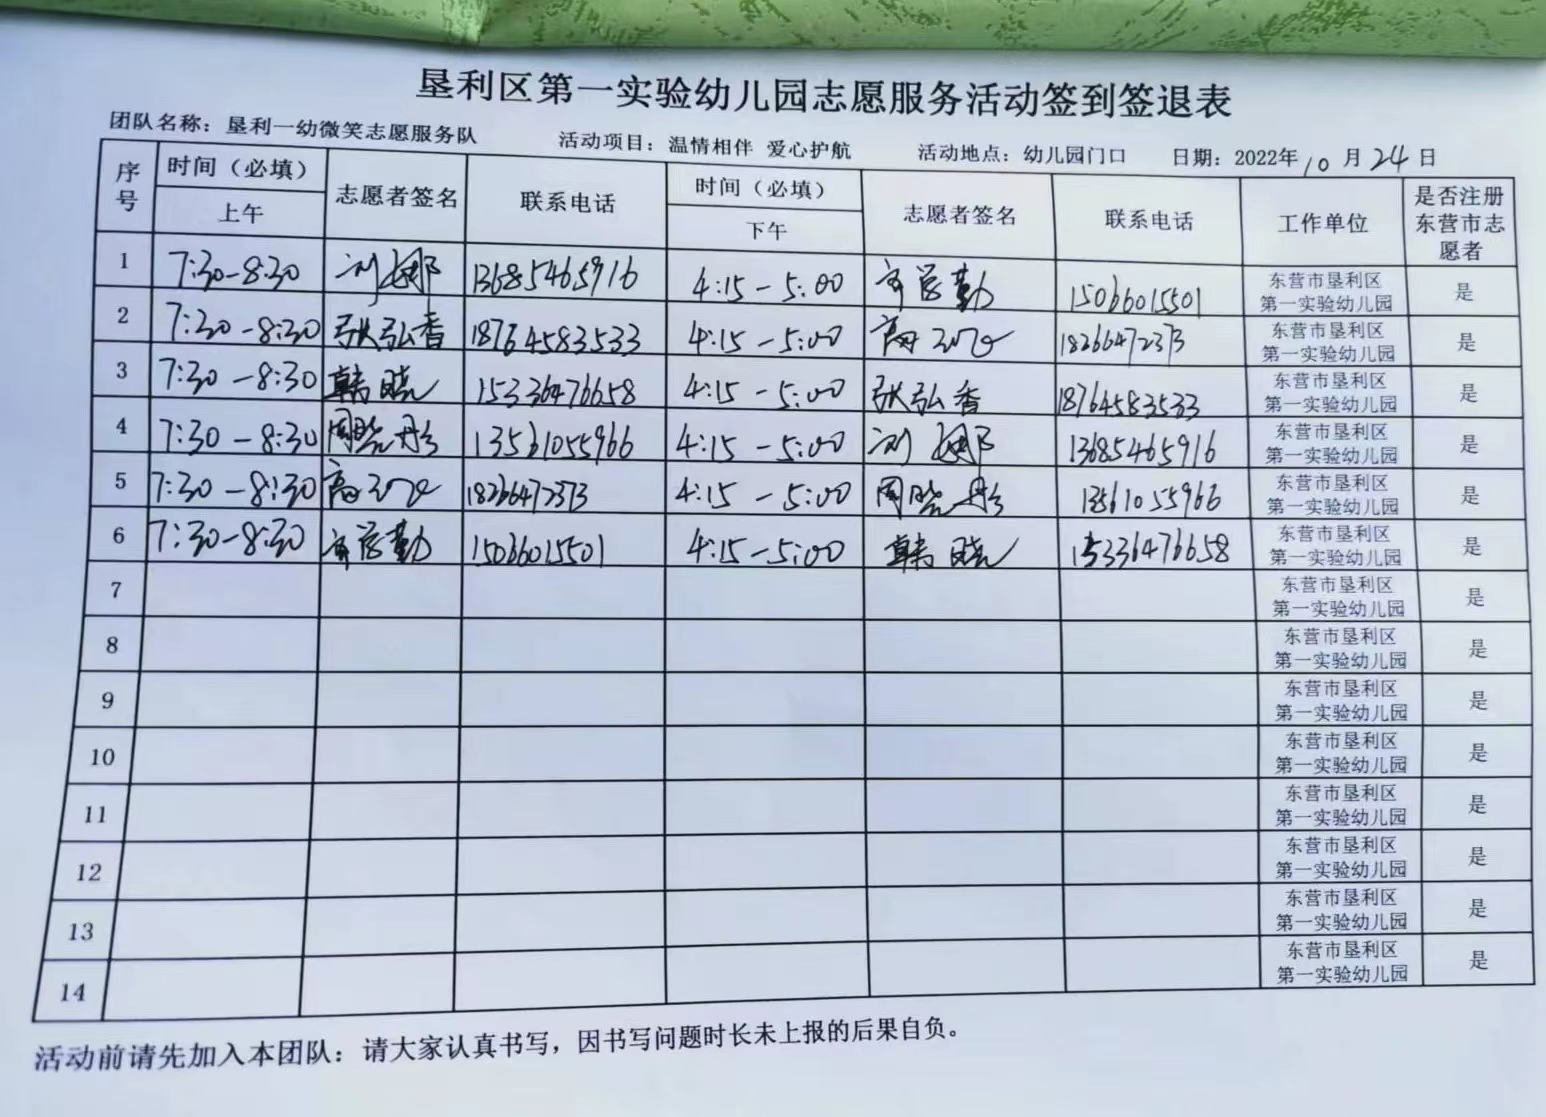 垦利区第一实验幼儿园志愿服务活动签到签退表
团队名称：垦利一幼微笑志愿服务队 活动项目：温情相伴 爱心护航 活动地点：幼儿园门口 日期：2022年10月24日
序号 时间（必填） 上午 志愿者签名 联系电话 时间（必填） 下午 志愿者签名 联系电话 工作单位 是否注册东营市志愿者
1 7:30-8:30 刘娜 13685465916 4:15-5:00 勤 15066015501 东营市垦利区第一实验幼儿园 是
2 7:30-8:30 张弘香 18764583533 4:15-5:00 高 18266472373 东营市垦利区第一实验幼儿园 是
3 7:30-8:30 韩晓 15336476658 4:15-5:00 张弘香 18764583533 东营市垦利区第一实验幼儿园 是
4 7:30-8:30 周晓彤 13561055966 4:15-5:00 刘娜 13685465916 东营市垦利区第一实验幼儿园 是
5 7:30-8:30 高 18266472373 4:15-5:00 周晓彤 13561055966 东营市垦利区第一实验幼儿园 是
6 7:30-8:30 勤 15066015501 4:15-5:00 韩晓 15336476658 东营市垦利区第一实验幼儿园 是
7 东营市垦利区第一实验幼儿园 是
8 东营市垦利区第一实验幼儿园 是
9 东营市垦利区第一实验幼儿园 是
10 东营市垦利区第一实验幼儿园 是
11 东营市垦利区第一实验幼儿园 是
12 东营市垦利区第一实验幼儿园 是
13 东营市垦利区第一实验幼儿园 是
14 东营市垦利区第一实验幼儿园 是
活动前请先加入本团队：请大家认真书写，因书写问题时长未上报的后果自负。